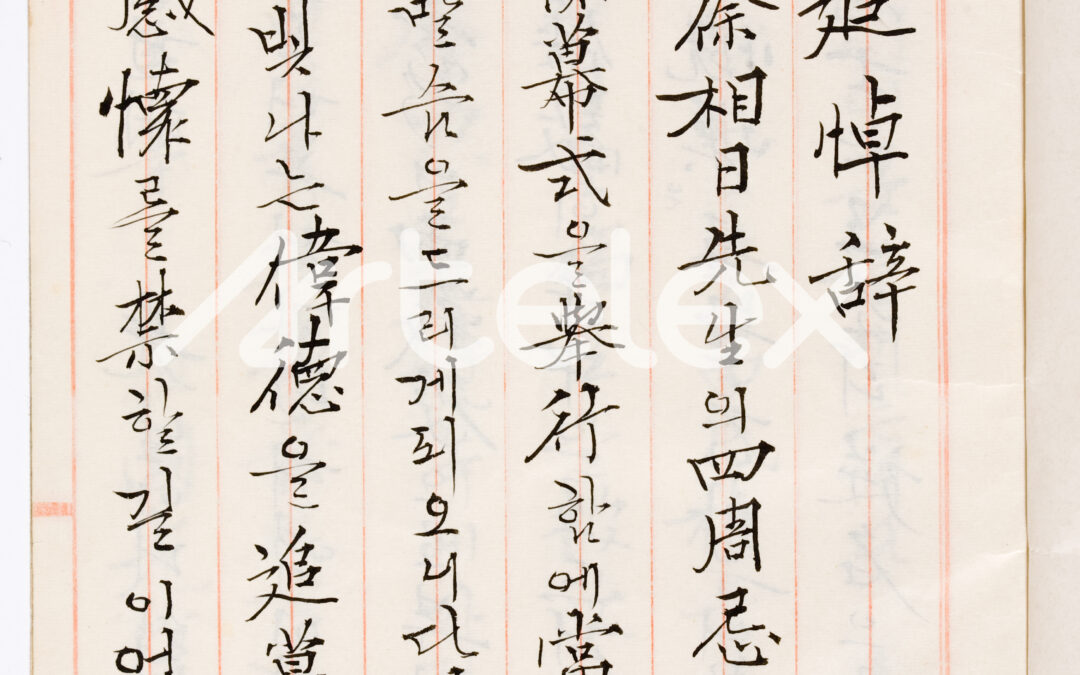 追悼辞
徐相日先生의四周忌
除幕式을擧行함에當
말슴을드리게되오니다
빛나는偉德을追慕
感懷를禁할길이업
Artelex